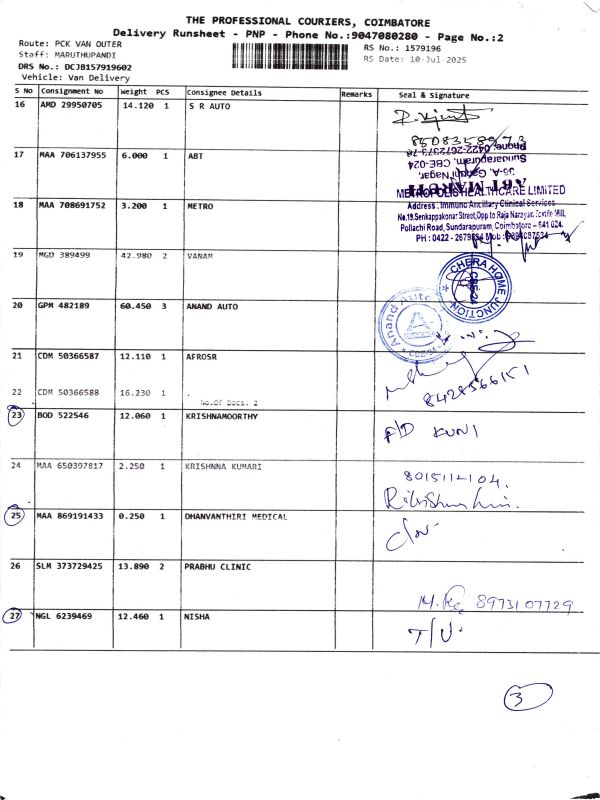 THE PROFESSIONAL COURIERS, COIMBATORE
Delivery Runsheet - PNP - Phone No.:9047080280 - Page No.:2
Route: PCK VAN OUTER
Staff: MARUTHUPANDI
DRS No.: DCJB157919602
Vehicle: Van Delivery
RS No.: 1579196
RS Date: 10-Jul-2025
S No Consignment No Weight PCS Consignee Details Remarks Seal & Signature
16 AMD 29950705 14.120 1 S R AUTO
8508358973
17 MAA 706137955 6.000 1 ABT
Phone: 0422-2672373-76
Sundarapuram, CBE-024
Gandhi Nagar,
ABT MARUTI
18 MAA 708691752 3.200 1 METRO
METROPOLIS HEALTHCARE LIMITED
Address: Immuno Ancillary Clinical Services
No.19.Senkappakonar Street,Opp to Raja Narayan Textile Mill,
Pollachi Road, Sundarapuram, Coimbatore - 641 024.
19 MGD 389499 42.980 2 VANAM
CHERA HOME JUNCTION
CBE-24
20 GPM 482189 60.450 3 ANAND AUTO
Anand Auto
21 CDM 50366587 12.110 1 AFROSR
22 CDM 50366588 16.230 1 .
No.Of Docs: 2
8428566151
23 BOD 522546 12.060 1 KRISHNAMOORTHY
F/D KUNI
24 MAA 650397817 2.250 1 KRISHNNA KUMARI
8015112104.
25 MAA 869191433 0.250 1 DHANVANTHIRI MEDICAL
26 SLM 373729425 13.890 2 PRABHU CLINIC
8973107729
27 NGL 6239469 12.460 1 NISHA
T/U
3